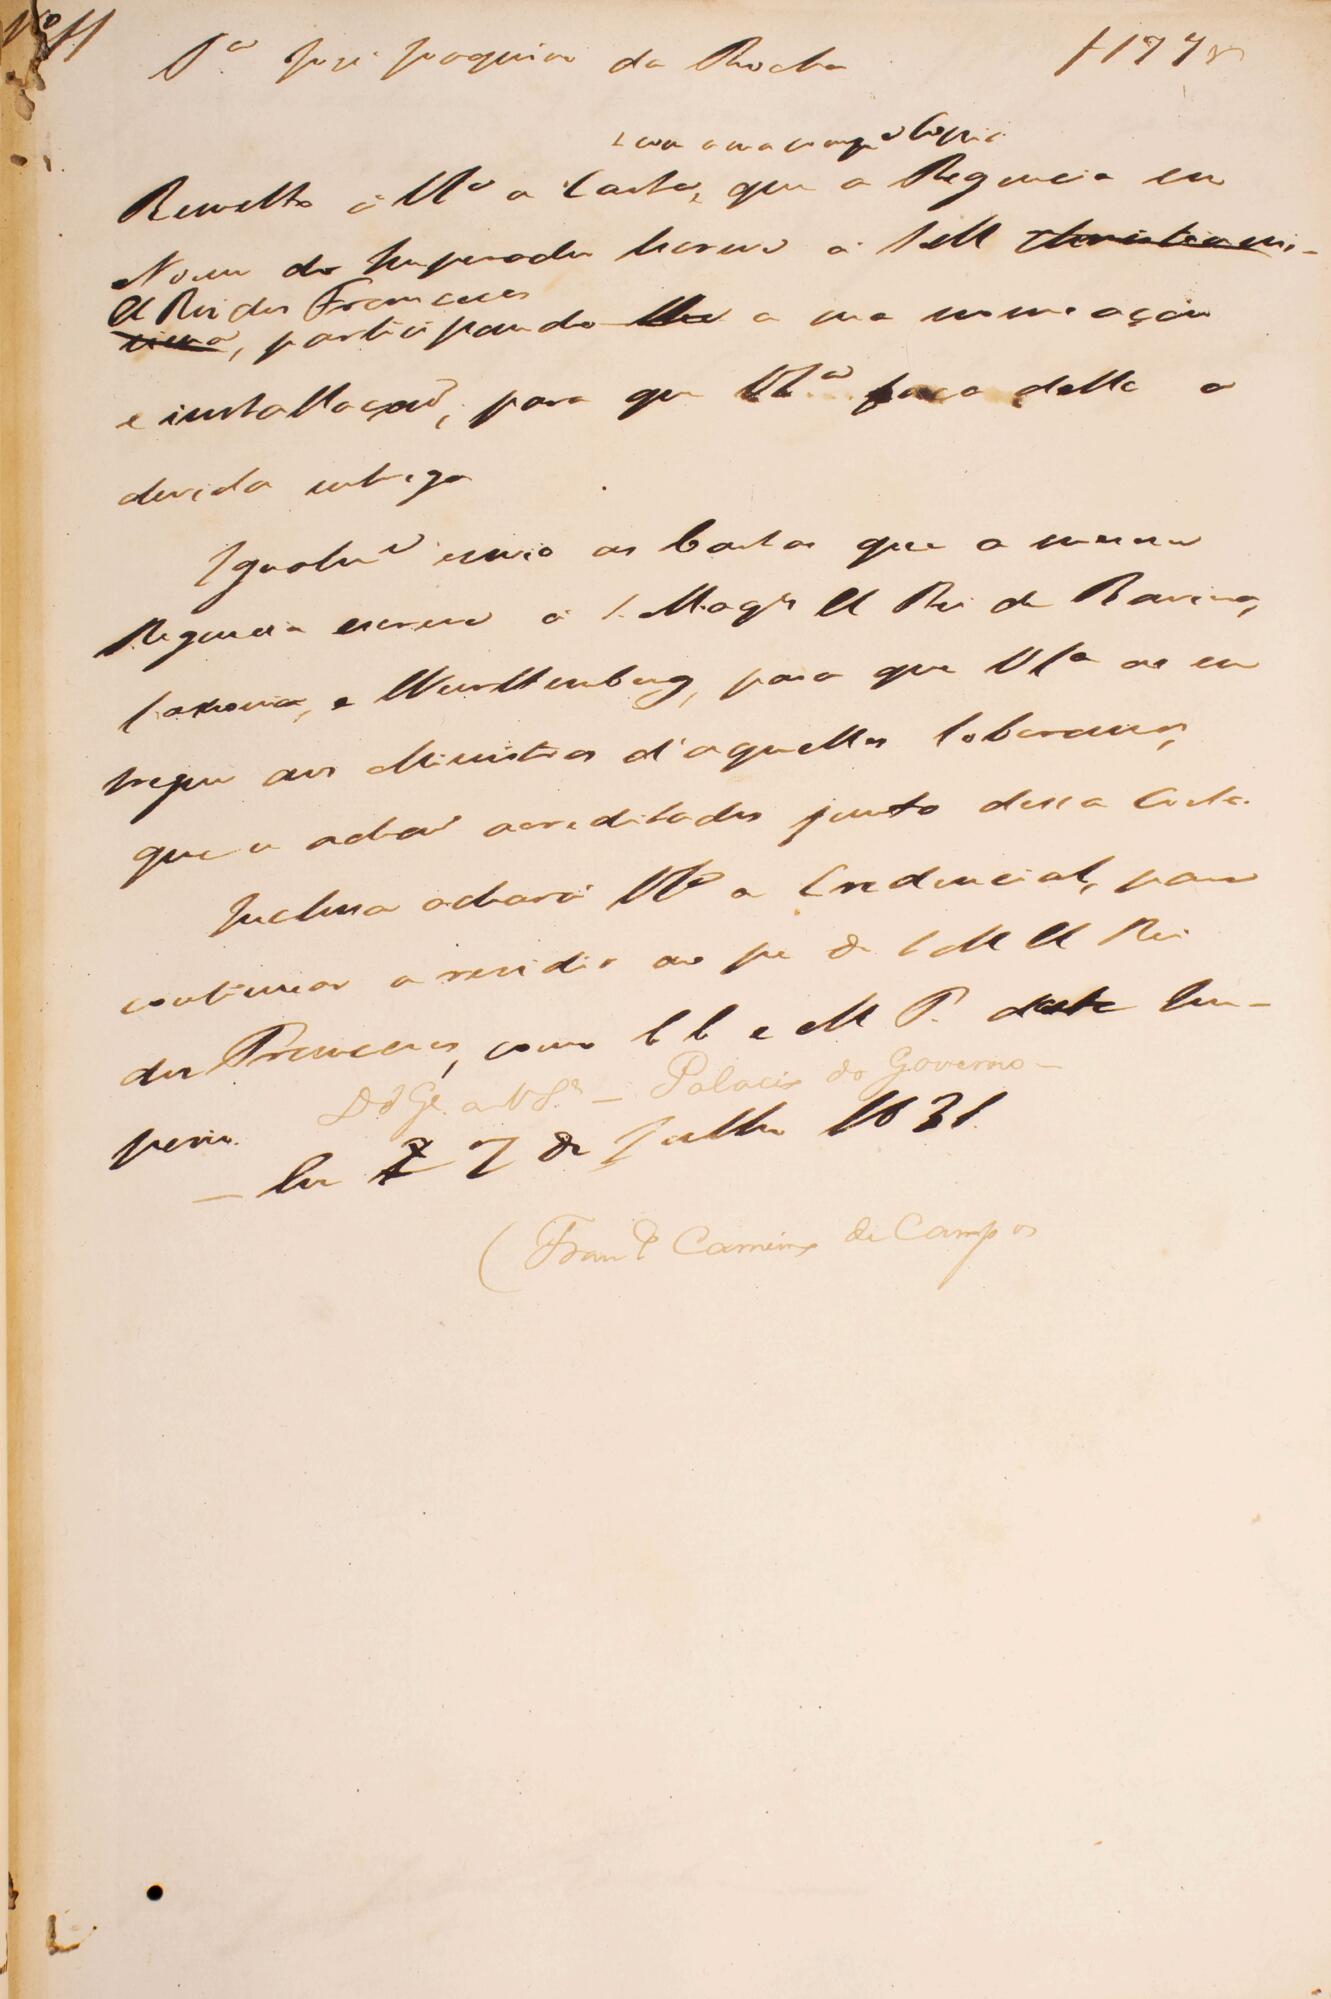 Nº 11
Pª José Joaquim da Rocha
, com a sua compete Copia
Remetto á V Sª a Carta, que a Regencia em
Nome do Imperador escreve a S M Christianissi-
El Rei dos Francezes
ma, participando-lhe a sua nomeação
e installação, para que V Sª faça della a
devida entrega
Igualmte envio as Cartas que a mesma
Regencia escreve á S. Magde El Rei de Baviera,
Saxonia, e Wurttemberg, para que V Sª as en
tregue aos Ministros d'aquelles Soberanos,
que se achão acreditados junto dessa Corte.
Incluza achará V Sª a Credencial, para
continuar a residir ao pe de S M El Rei
dos Francezes, como E E e M P. deste Im-
perio.
Ds Ge. a V Sª - Palacio do Governo -
- Em 7 de Julho 1831.
(Franco Carneiro de Campos